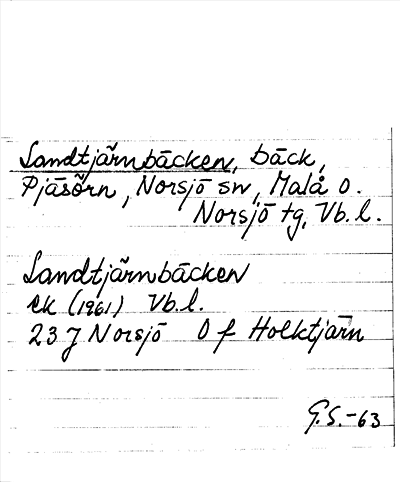 Sandtjärnbäcken, bäck,
Pjäsörn, Norsjö sn, Malå o.
Norsjö tg, Vb. l.
Sandtjärnbäcken
ek (1961) Vb. l.
23 J Norsjö O f Holktjärn
G.S.-63